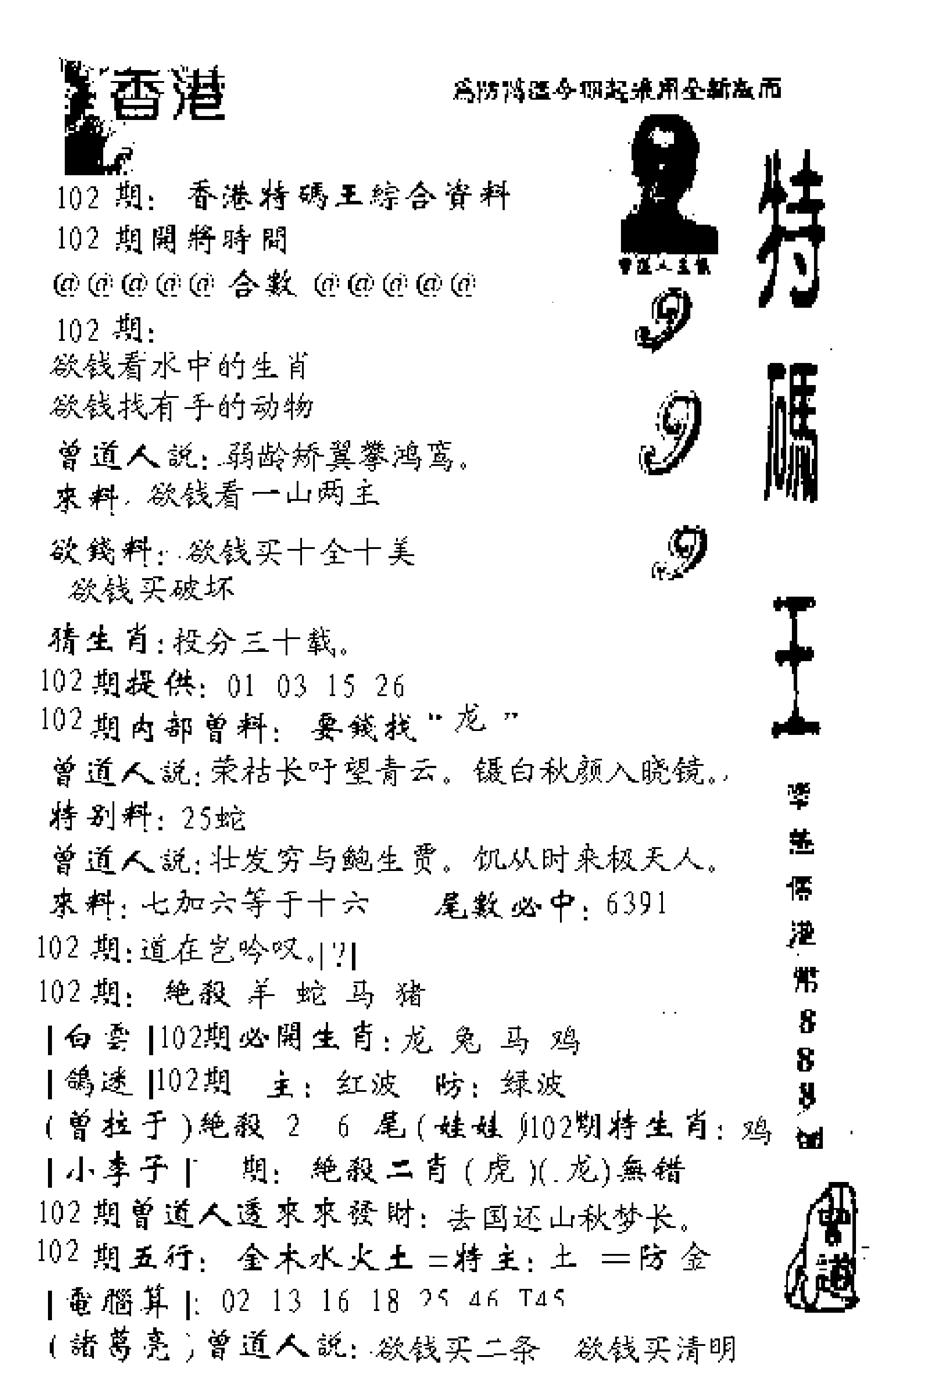 香港
為防混淆今期起采用全新版面
102 期: 香港特碼王綜合資料
102 期開將時間
@@@@@ 合數 @@@@@
102 期:
欲钱看水中的生肖
欲钱找有手的动物
曾道人説: 弱龄矫翼攀鸿鸾。
來料: 欲钱看一山两主
欲錢料: 欲钱买十全十美
欲钱买破坏
猜生肖: 投分三十载。
102期提供: 01 03 15 26
102期内部曾料: 要錢找“龙”
曾道人説: 荣枯长吁望青云。镊白秋颜入晓镜。
特别料: 25蛇
曾道人説: 壮发穷与鲍生贾。饥从时来极天人。
來料: 七加六等于十六 尾數必中: 6391
102期: 道在岂吟叹。|?|
102期: 絶殺 羊 蛇 马 猪
|白雲|102期必開生肖: 龙 兔 马 鸡
|鴿迷|102期 主: 红波 防: 绿波
(曾拉于)絶殺 2 6 尾(娃娃)102期特生肖: 鸡
|小李子| 期: 絶殺二肖(虎)(龙)無错
102期曾道人透來來發財: 去国还山秋梦长。
102期五行: 金木水火土=特主: 土 =防 金
|電腦算|: 02 13 16 18 25 46 T45
(諸葛亮)曾道人説: 欲钱买二条 欲钱买清明
999
特碼王
港幣888
曾道